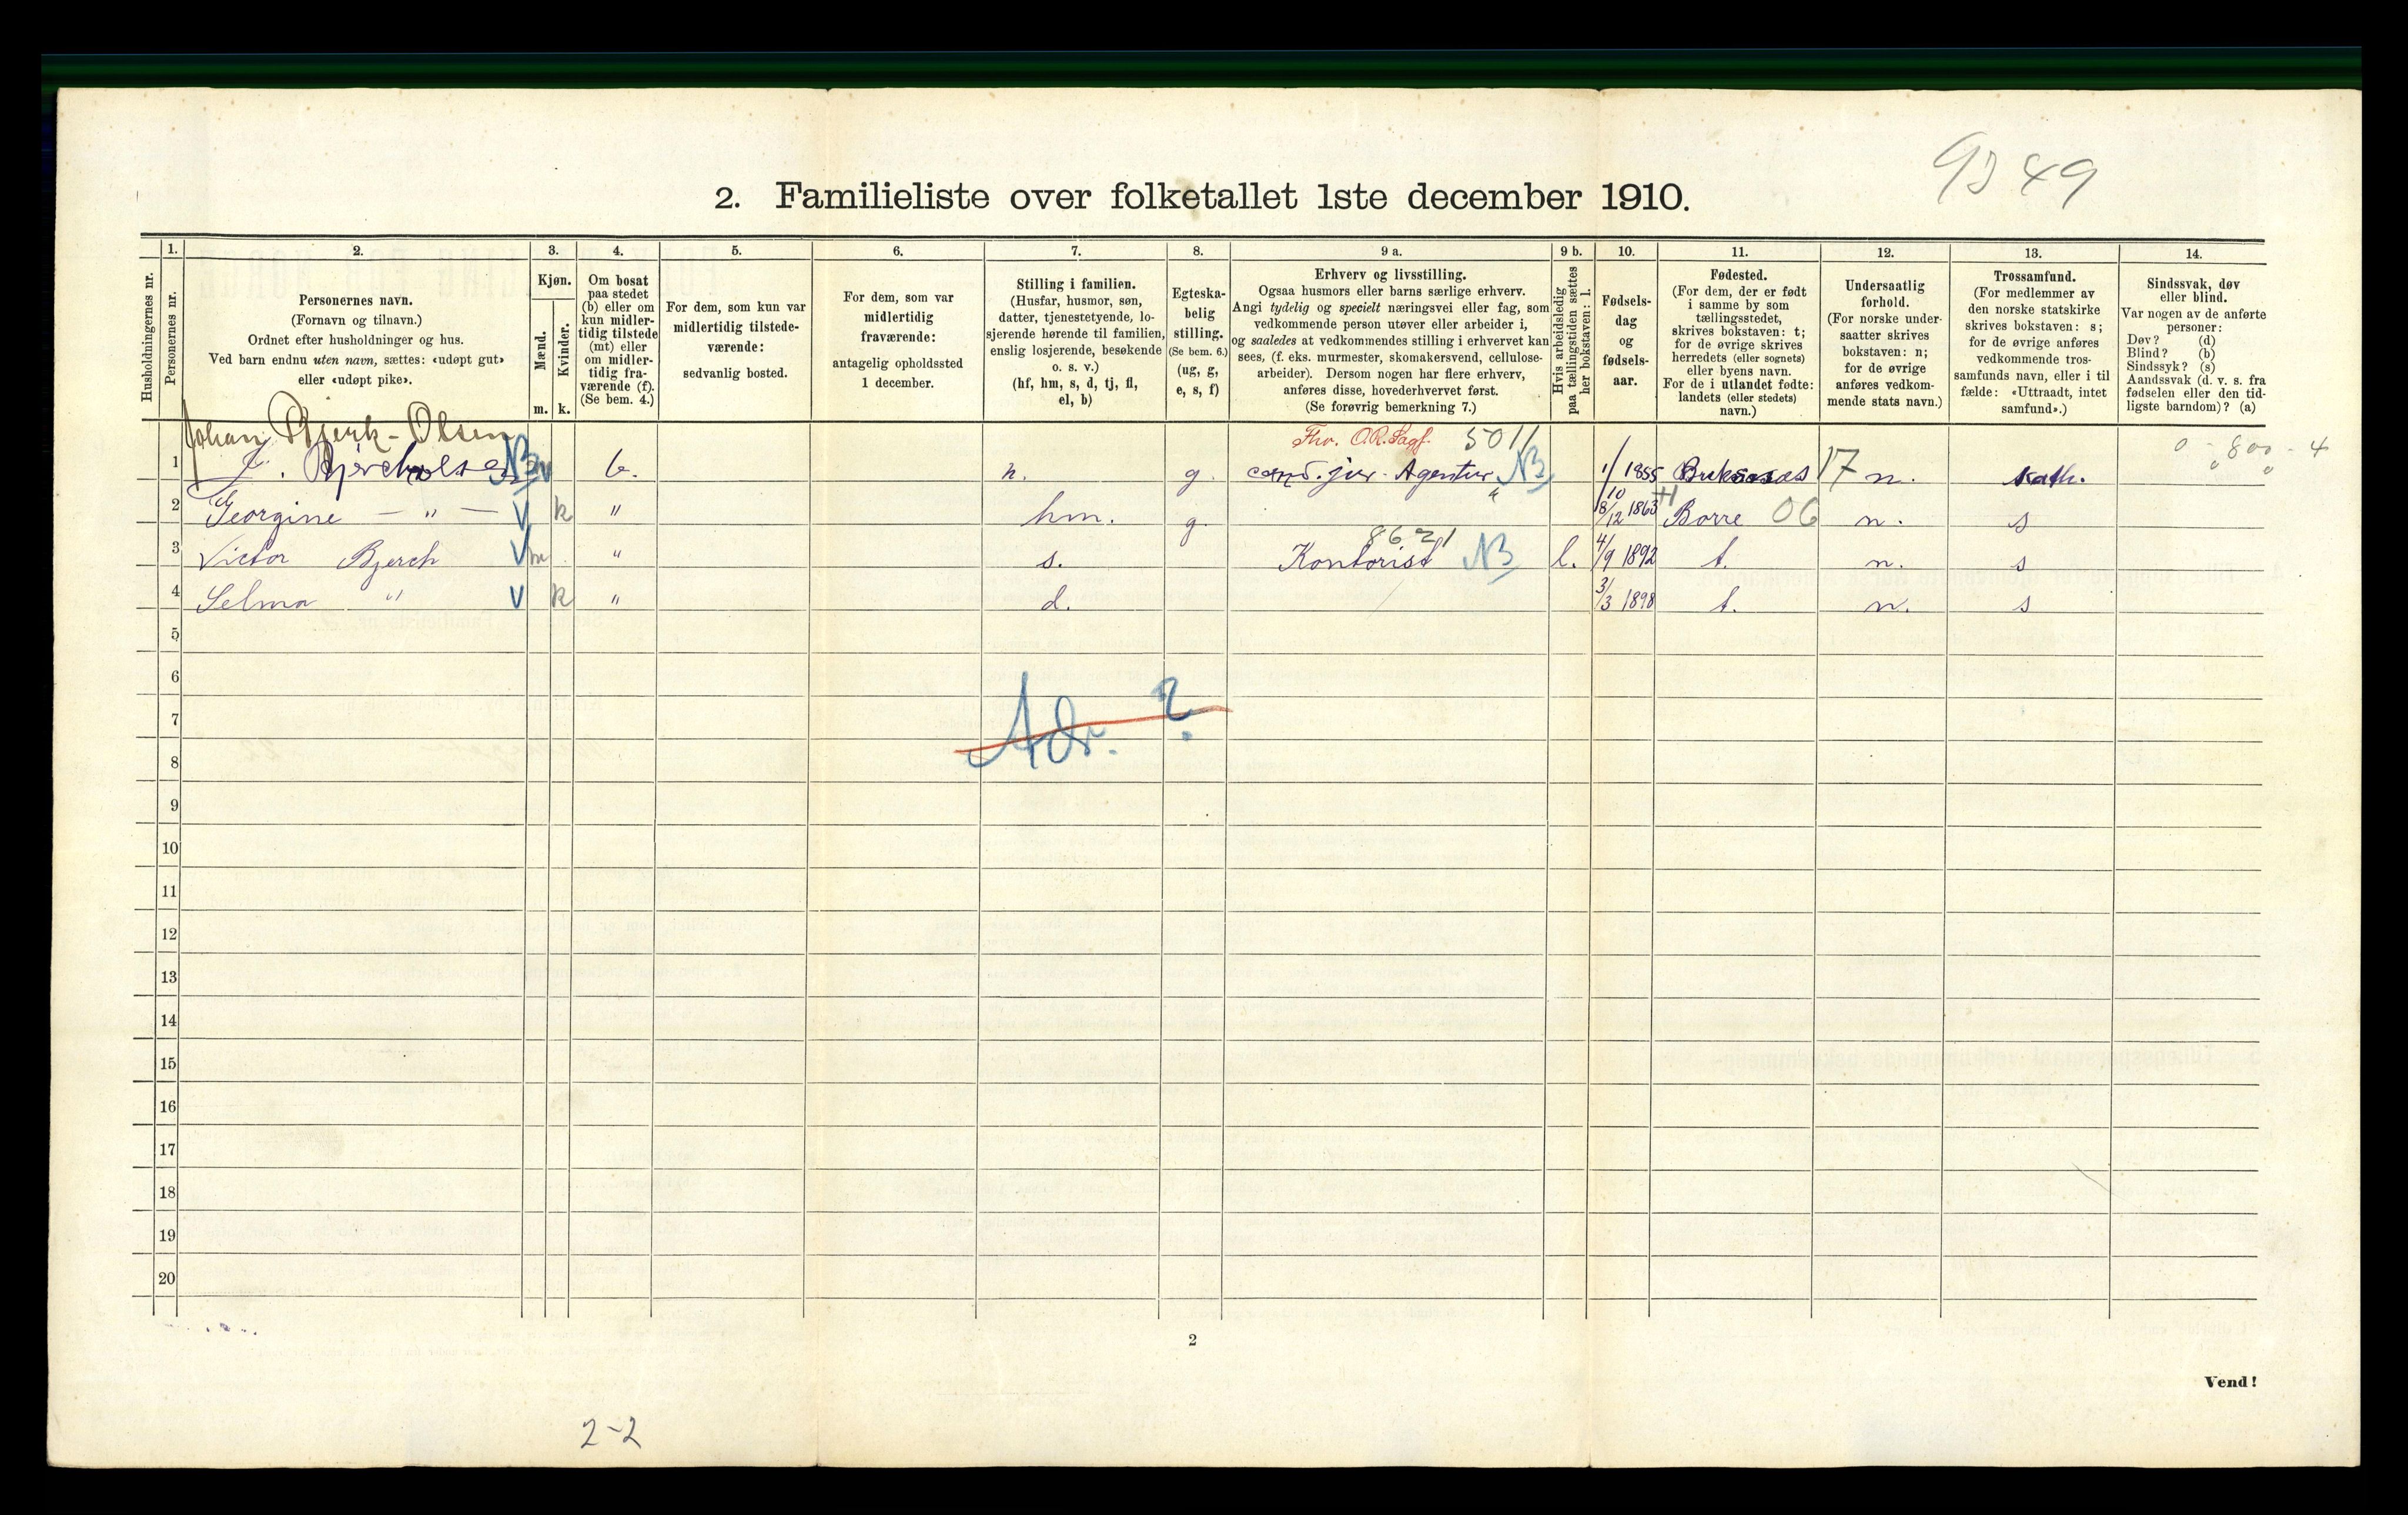 9349
2. Familieliste over folketallet 1ste december 1910.
1. 2. 3. 4. 5. 6. 7. 8. 9 a. 9 b. 10. 11. 12. 13. 14.
Husholdningernes nr.
Personernes nr.
Personernes navn.
(Fornavn og tilnavn.)
Ordnet efter husholdninger og hus.
Ved barn endnu uten navn, sættes: «udøpt gut»
eller «udøpt pike».
Kjøn.
Mænd.
Kvinder.
m. k.
Om bosat
paa stedet
(b) eller om
kun midler-
tidig tilstede
(mt) eller
om midler-
tidig fra-
værende (f).
(Se bem. 4.)
For dem, som kun var
midlertidig tilstede-
værende:
sedvanlig bosted.
For dem, som var
midlertidig
fraværende:
antagelig opholdssted
1 december.
Stilling i familien.
(Husfar, husmor, søn,
datter, tjenestetyende, lo-
sjerende hørende til familien,
enslig losjerende, besøkende
o. s. v.)
(hf, hm, s, d, tj, fl,
el, b)
Egteska-
belig
stilling.
(Se bem. 6.)
(ug, g,
e, s, f)
Erhverv og livsstilling.
Ogsaa husmors eller barns særlige erhverv.
Angi tydelig og specielt næringsvei eller fag, som
vedkommende person utøver eller arbeider i,
og saaledes at vedkommendes stilling i erhvervet kan
sees, (f. eks. murmester, skomakersvend, cellulose-
arbeider). Dersom nogen har flere erhverv,
anføres disse, hovederhvervet først.
(Se forøvrig bemerkning 7.)
Hvis arbeidsledig
paa tællingstiden sættes
her bokstaven: l.
Fødsels-
dag
og
fødsels-
aar.
Fødested.
(For dem, der er født
i samme by som
tællingsstedet,
skrives bokstaven: t;
for de øvrige skrives
herredets (eller sognets)
eller byens navn.
For de i utlandet fødte:
landets (eller stedets)
navn.)
Undersaatlig
forhold.
(For norske under-
saatter skrives
bokstaven: n;
for de øvrige
anføres vedkom-
mende stats navn.)
Trossamfund.
(For medlemmer av
den norske statskirke
skrives bokstaven: s;
for de øvrige anføres
vedkommende tros-
samfunds navn, eller i til
fælde: «Uttraadt, intet
samfund».)
Sindssvak, døv
eller blind.
Var nogen av de anførte
personer:
Døv? (d)
Blind? (b)
Sindssyk? (s)
Aandssvak (d. v. s. fra
fødselen eller den tid-
ligste barndom)? (a)
Johan Bjerk-Olsen
5011 0 - 800 - 4
1 J. b. h. g. cand. jur. Agentur NB 1/10 1855 17 n. kath.
2 Georgine — " — V k " hm. g. 18/12 1863 Borre 06 n. s
8621
3 Victor Bjerch V m " s. Kontorist NB l. 4/9 1892 t. n. s
4 Selma " V k " d. 3/3 1898 t. n. s
5
6
Adr. ?
7
8
9
10
11
12
13
14
15
16
17
18
19
20
2
Vend!
2-2